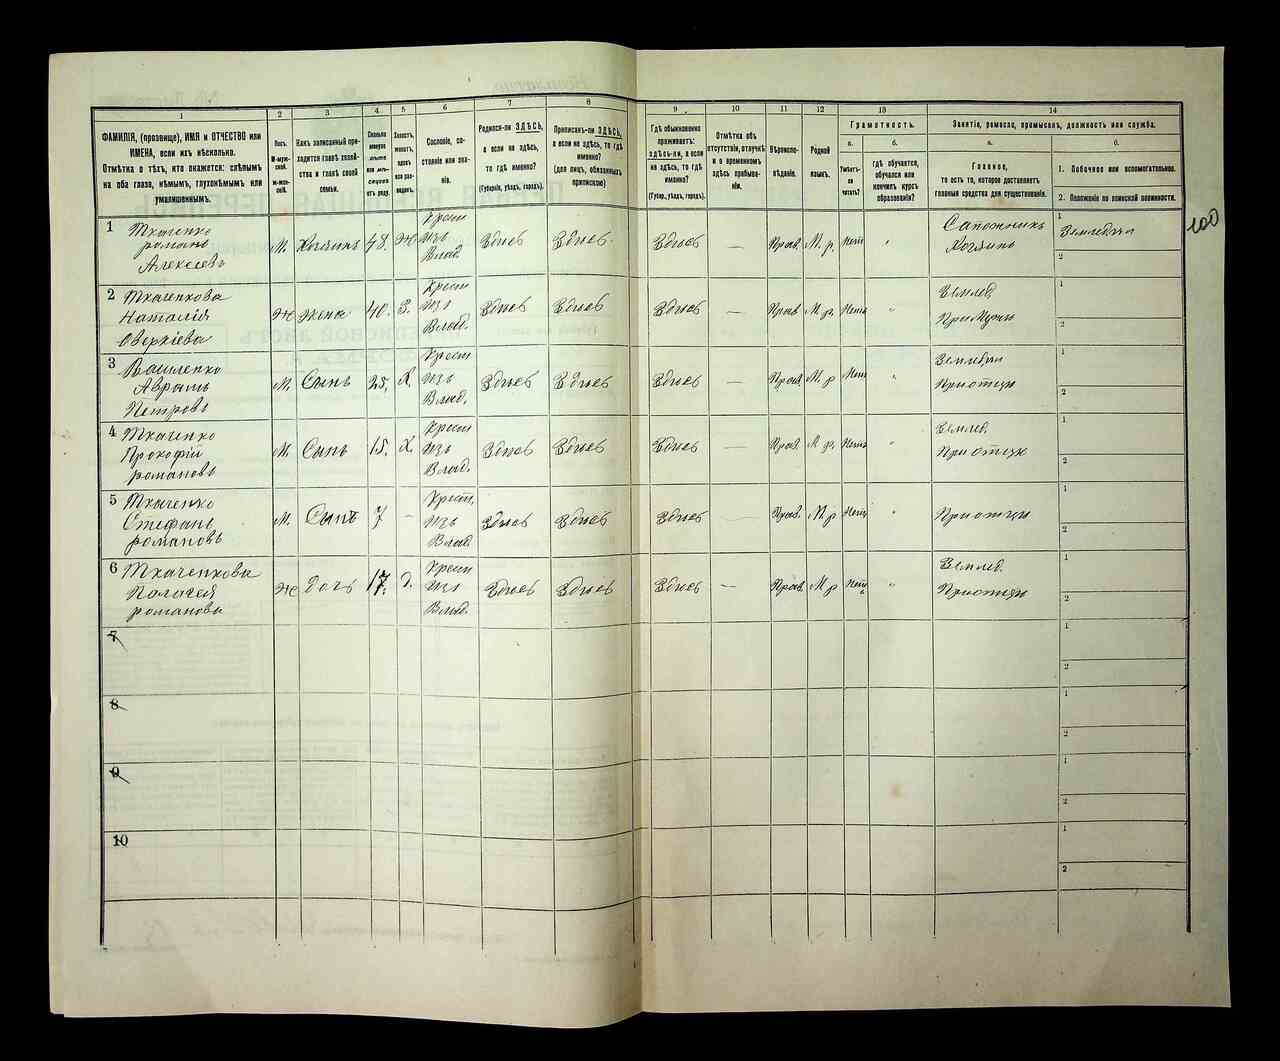 1
2
3
4
5
6
7
8
9
10
11
12
13
14
ФАМИЛІЯ, (прозвище), ИМЯ и ОТЧЕСТВО или
ИМЕНА, если ихъ нѣсколько.
Отмѣтка о тѣхъ, кто окажется: слѣпымъ
на оба глаза, нѣмымъ, глухонѣмымъ или
умалишеннымъ.
Полъ.
М-муж-
ской.
Ж-жен-
скій.
Какъ записанный при-
ходится главѣ хозяй-
ства и главѣ своей
семьи.
Сколько
минуло
лѣтъ
или мѣ-
сяцевъ
отъ роду.
Холостъ,
женатъ,
вдовъ
или раз-
веденъ.
Сословіе, со-
стояніе или зва-
ніе.
Родился-ли ЗДѢСЬ,
а если не здѣсь,
то гдѣ именно?
(Губернія, уѣздъ, городъ).
Приписанъ-ли ЗДѢСЬ,
а если не здѣсь, то гдѣ
именно?
(для лицъ, обязанныхъ
припискою)
Гдѣ обыкновенно
проживаетъ:
здѣсь-ли, а если
не здѣсь, то гдѣ
именно?
(Губер., уѣздъ, городъ).
Отмѣтка объ
отсутствіи, отлучкѣ
и о временномъ
здѣсь пребыва-
ніи.
Вѣроиспо-
вѣданіе.
Родной
языкъ.
Грамотность.
а.
б.
Умѣетъ-
ли
читать?
гдѣ обучается,
обучался или
кончилъ курсъ
образованія?
Занятіе, ремесло, промыселъ, должность или служба.
а.
б.
Главное,
то есть то, которое доставляетъ
главныя средства для существованія.
1. Побочное или вспомогательное.
2. Положеніе по воинской повинности.
100
1 Ткаченко
романъ
Алексеевъ
М. Хозяинъ 48. Ж
Крест
изъ
Влад.
Здѣсь Здѣсь. Здѣсь — Прав. М. р. Нет "
Сапожникъ
Хозяинъ
1
2
2 Ткаченкова
Наталія
Оверкіева
Ж Жена 40. З.
Крест
изъ
Влад.
Здѣсь Здѣсь Здѣсь — Прав М. р. Нетъ "
Землед.
При Мужи
1
2
3 Василенко
Аврамъ
Петровъ
М. Сынъ 25, Х.
Крест
изъ
Влад.
Здѣсь Здѣсь Здѣсь — Прав. М. р Нет "
При отцы
1
2
4 Ткаченко
Прокофій
романовъ
М. Сынъ 15. Х.
Крест
изъ
Влад.
Здѣсь Здѣсь Здѣсь — Прав. М. р. Нетъ "
Землед.
При отцы
1
2
5 Ткаченко
Стефанъ
романовъ
М. Сынъ 7 —
Крест.
изъ
Влад.
Здѣсь Здѣсь Здѣсь — Прав. М. р Нет "
При отцы
1
2
6 Ткаченкова
Пелагея
романова
Ж Дочь 17. Д.
Крест
изъ
Влад.
Здѣсь Здѣсь Здѣсь — Прав. М р Нет "
Землед.
При отцы
1
2
7
1
2
8
1
2
9
1
2
10
1
2